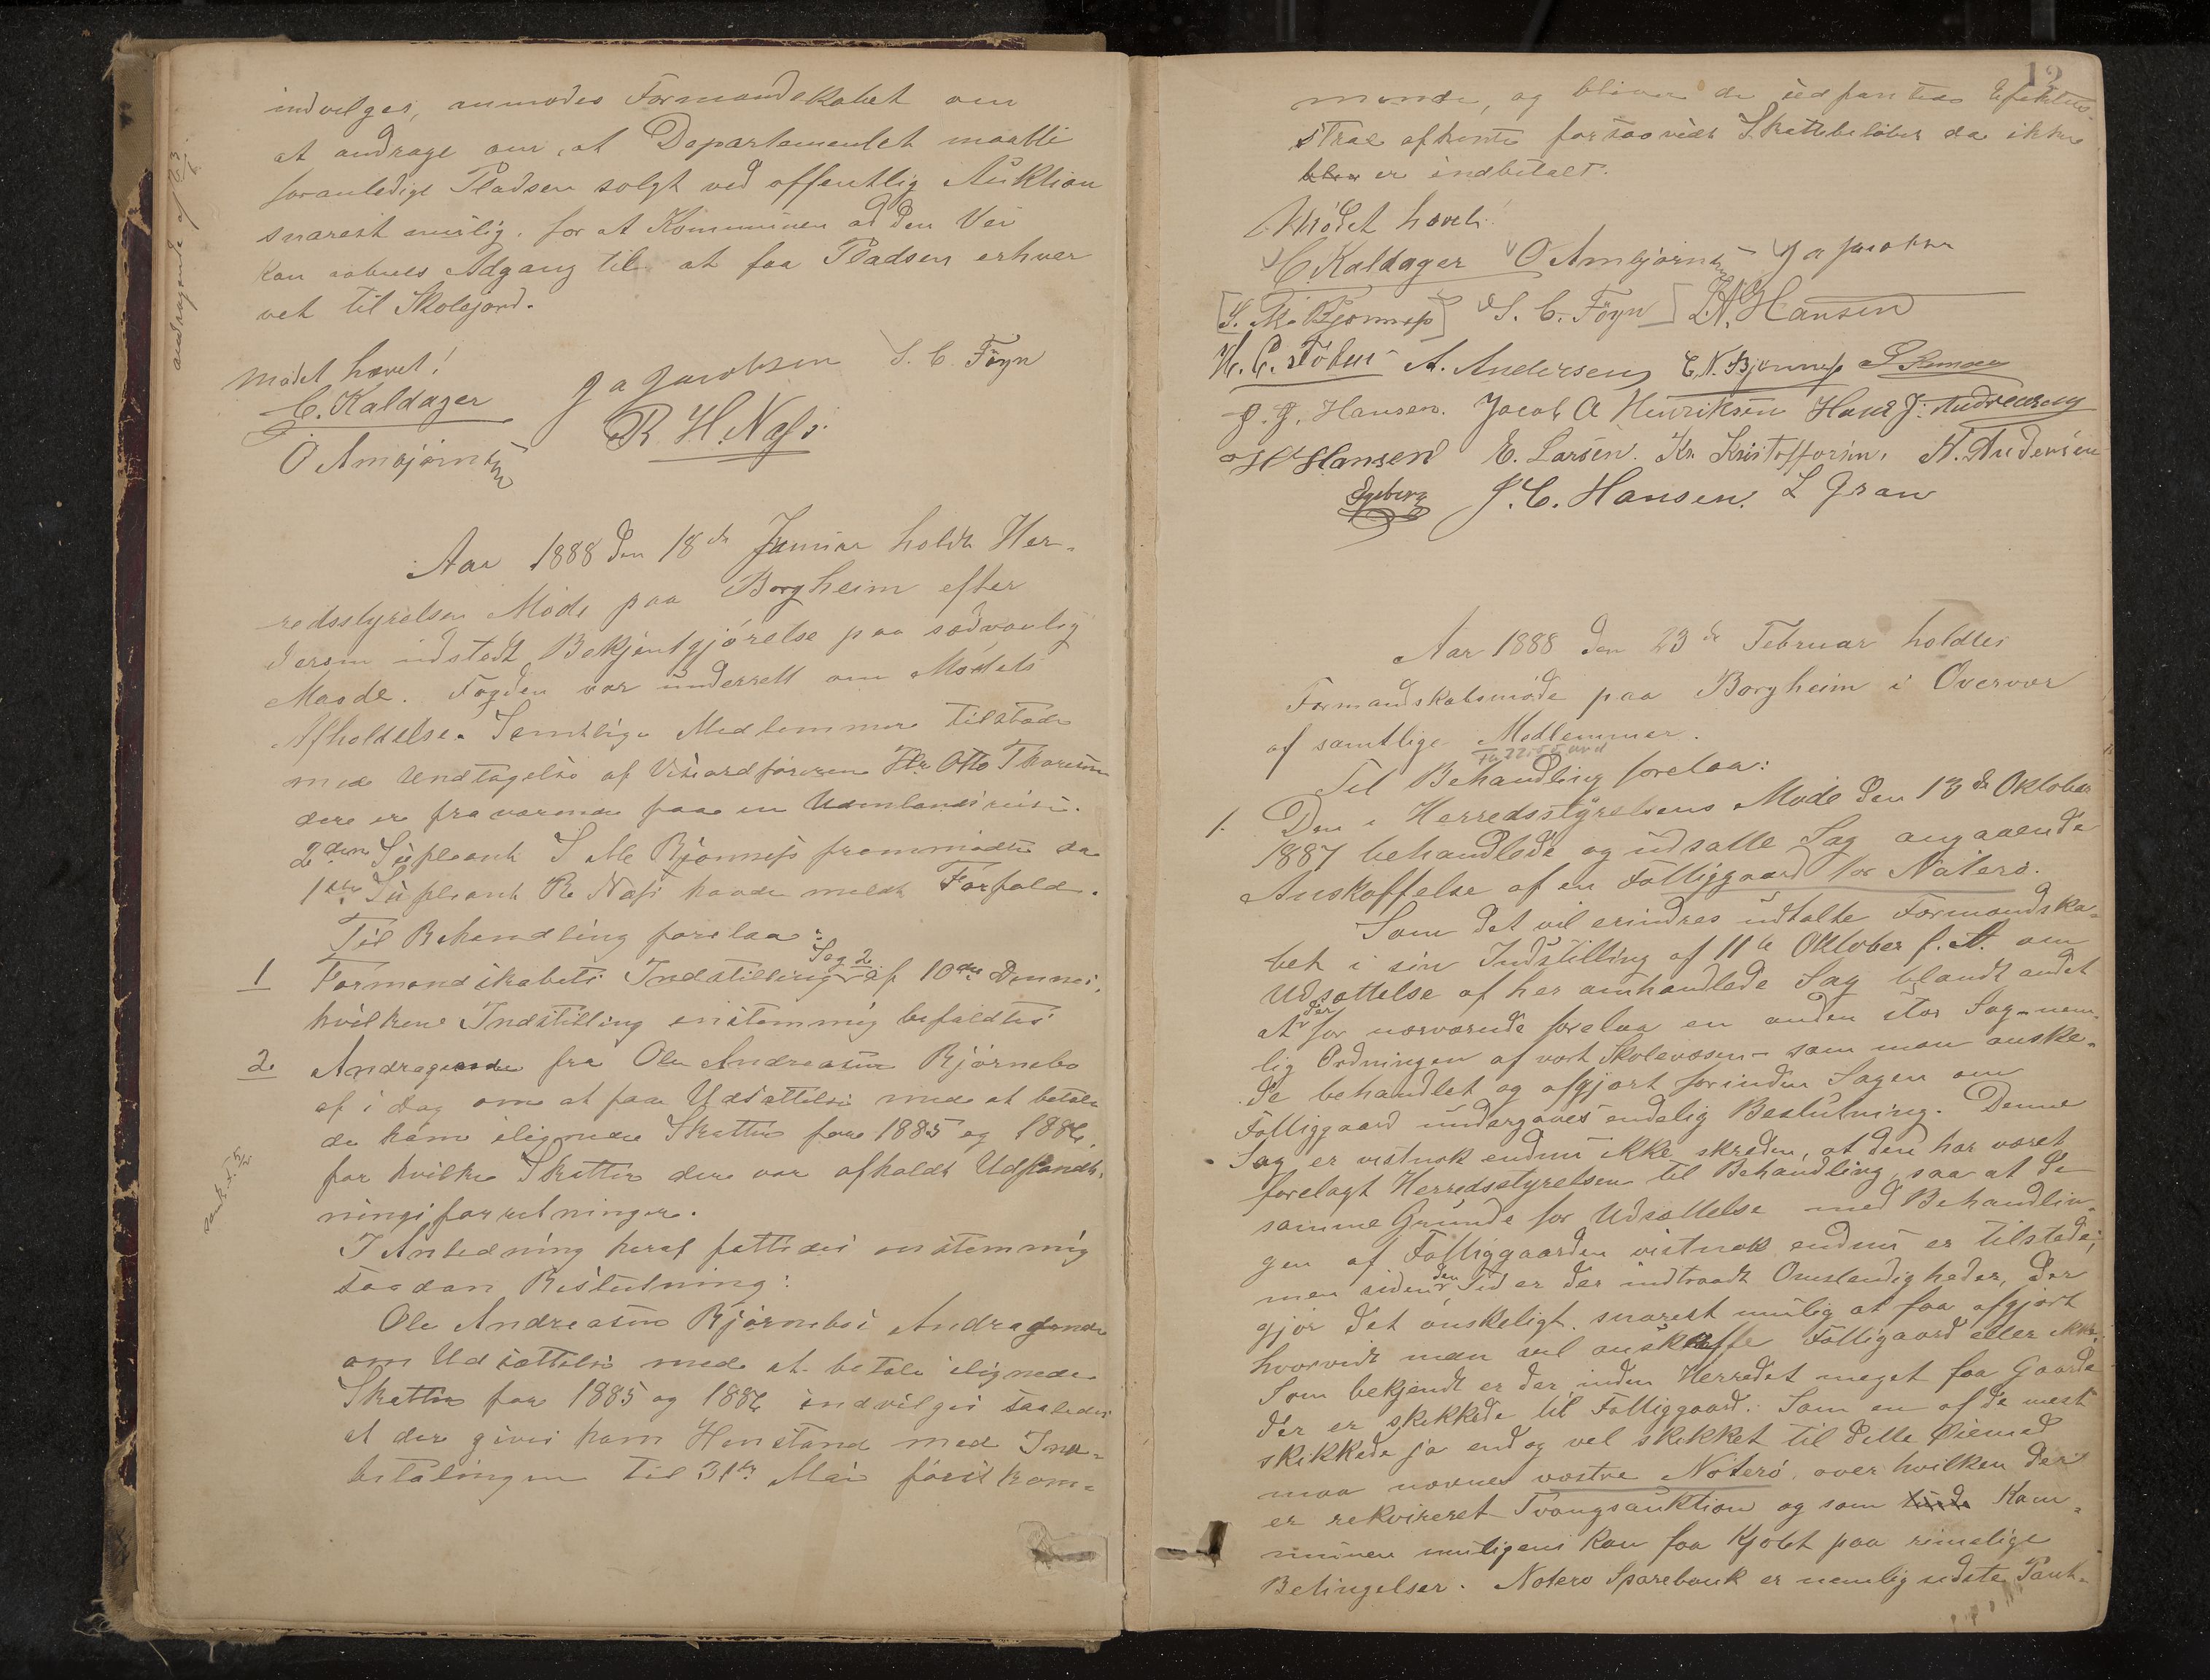 indvilges, anmodes Formandskabet om
at andrage om, at Departementet maatte
foranledige Pladsen solgt ved offentlig Auktion
snarest mulig, for at Kommunen ad den Vei
kan aabnes Adgang til at faa Pladsen erhver
vet til Skolejord.
Mødet hævet!
C. Kaldager J A Jacobsen S. C. Föyn
O Ambjørnsen R H. Nøss
Aar 1888 den 18de Januar holdt Her-
redsstyrelsen Møde paa Borgheim efter
derom udstedt Bekjentgjørelse paa sædvanlig
Maade. Fogden var underrett om Mødets
Afholdelse. Samtlige Medlemmer tilstede
med Undtagelse af Viseordføreren Hr Otto Thoresen
der er fraværende paa en Udenlandsreise.
2den Supleant S. M. Bjønness fremmødte da
1ste Supleant R. Næss havde meldt Forfald.
Til Behandling forelaa:
1 Formandskabets Indstilling Sag 2 af 10de Dennes,
hvilken Indstilling enstemmig befaldtes
2 Andragende fra Ole Andreasen Bjørnebo
af i Dag om at faa Udsættelse med at betale
de ham ilignede Skatter for 1885 og 1886,
for hvilke Skatter der var afholdt Udpandt-
ningsforretninger.
I Anledning heraf fattedes enstemmig
saadan Beslutning:
Ole Andreasen Bjørnebos Andragende
om Udsættelse med at betale ilignede
Skatter for 1885 og 1886 indvilges saaledes
at der gives ham Henstand med Ind-
betalingen til 31te Mai først kom-
12
mende, og bliver de udpantede Effekter
strax afhente forsaavidt Skattebeløbet da ikke
blev er indbetalt.
Mødet hævet.
C. Kaldager O Ambjørnsen J A Jacobsen
S. M. Bjønness S. C. Föyn L. A. Hansen
A. Andersen E. N. Bjønness
J. J. Hansen. Jacob A Henriksen Hans J. Andreasen
H Hansen E. Larsen. Kr. Kristoffersen, A. Andersen
Egeberg J. C. Hansen. L Gran
Aar 1888 den 23de Februar holdtes
Formandskabsmøde paa Borgheim i Overvær
af samtlige Medlemmer.
Til Behandling forelaa:
1. Den i Herredsstyrelsens Møde den 13de Oktober
1887 behandlede og udsatte Sag angaaende
Anskaffelse af en Fattiggaard for Nøterø.
Som det vil erindres udtalte Formandska-
bet i sin Indstilling af 11te Oktober f. A. om
Udsættelse af her omhandlede Sag blandt andet
at der for nærværende forelaa en anden stor Sag - nem-
lig Ordningen af vort Skolevæsen - som man ønske-
de behandlet og afgjort forinden Sagen om
Fattiggaard undergaves endelig Beslutning. Denne
Sag er vistnok endnu ikke skreden, at den har været
forelagt Herredsstyrelsen til Behandling, saa at de
samme Grunde for Udsættelse med Behandlin-
gen af Fattiggaarden vistnok endnu er tilstede;
men siden den Tid er der indtraadt Omstendigheder, der
gjør det ønskeligt snarest mulig at faa afgjort
hvorvidt man vil anskaffe Fattiggaard eller ikke.
Som bekjendt er der inden Herredet meget faa Gaarde
der er skikkede til Fattiggaard. Som en af de mest
skikkede ja endog vel skikket til dette Øiemed
maa nævnes vestre Nøterø, over hvilken der
er rekvireret Tvangsauktion og som Kom-
munen muligens kan faa kjøbt paa rimelige
Betingelser. Nøterø Sparebank er nemlig sidste Pant-